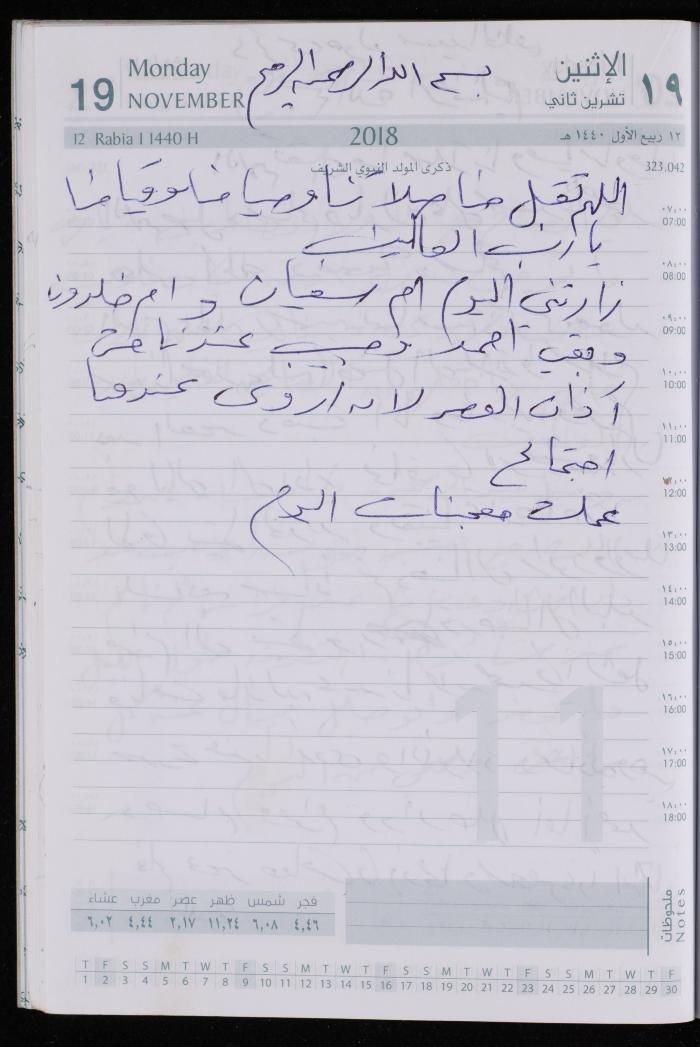 19 Monday NOVEMBER
بسم الله الرحمن الرحيم
الإثنين ١٩ تشرين ثاني
12 Rabia I 1440 H 2018 ١٢ ربيع الأول ١٤٤٠ هـ
ذكرى المولد النبوي الشريف 323,042
اللهم تقبل منا صلاتنا وصيامنا وقيامنا
٠٧:٠٠
07:00
يا رب العالمين
٠٨:٠٠
08:00
زارتني اليوم ام سفيان وام خلدون
٠٩:٠٠
09:00
وبقي احمد عندنا حتى
١٠:٠٠
10:00
آذان العصر لانه اروى عندها
١١:٠٠
11:00
اجتماع
١٢:٠٠
12:00
عملت معجنات اليوم
١٣:٠٠
13:00
١٤:٠٠
14:00
١٥:٠٠
15:00
١٦:٠٠
16:00
١٧:٠٠
17:00
١٨:٠٠
18:00
11
ملحوظات
Notes
فجر شمس ظهر عصر مغرب عشاء
٤,٤٦ ٦,٠٨ ١١,٢٤ ٢,١٧ ٤,٤٤ ٦,٠٢
T F S S M T W T F S S M T W T F S S M T W T F S S M T W T F
1 2 3 4 5 6 7 8 9 10 11 12 13 14 15 16 17 18 19 20 21 22 23 24 25 26 27 28 29 30